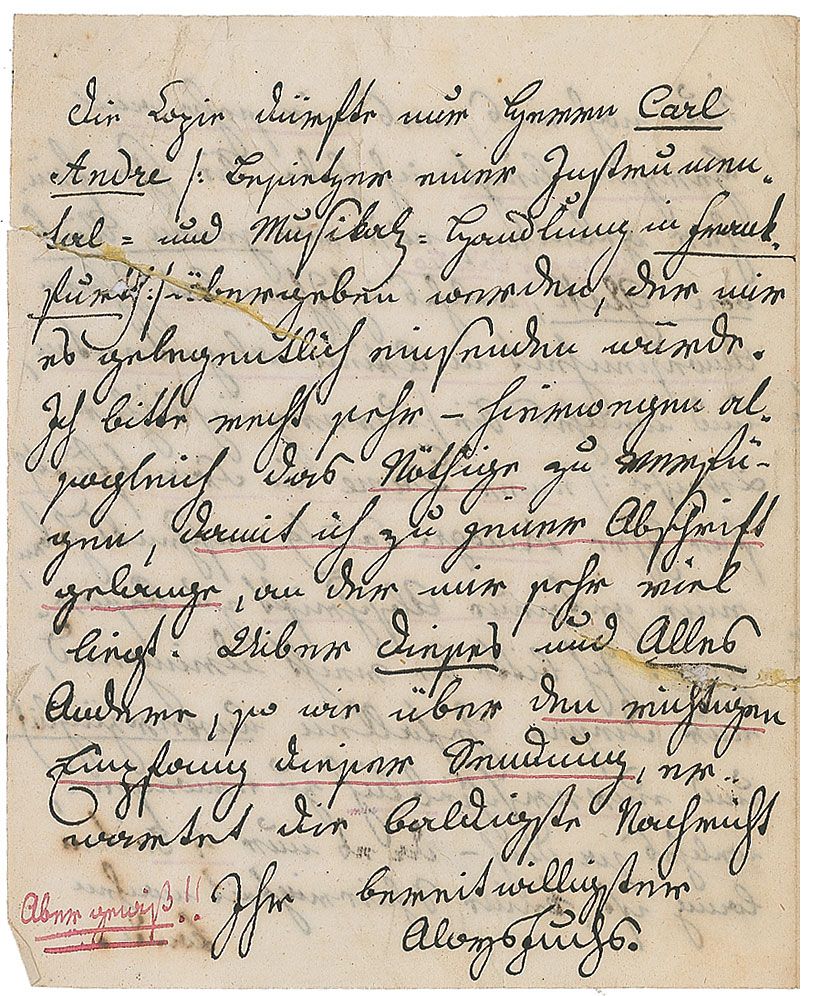 die Copie dürfte nur Herrn Carl
Andre /: Besietzer einer Instrumen-
tal = und Musikalz = Handlung in Frank-
furth :/ übergeben werden, der mir
es gelegentlich einsenden würde.
Ich bitte recht sehr – hierwegen al-
sogleich das Nöthige zu verfü-
gen, damit ich zu jener Abschrift
gelange, an der mir sehr viel
liegt. Uiber dieses und Alles
Andere, so wie über den richtigen
Empfang dieser Sendung, er-
wartet die baldigste Nachricht
Ihr bereitwilligster
Aber gewiß!!
Aloys Fuchs.